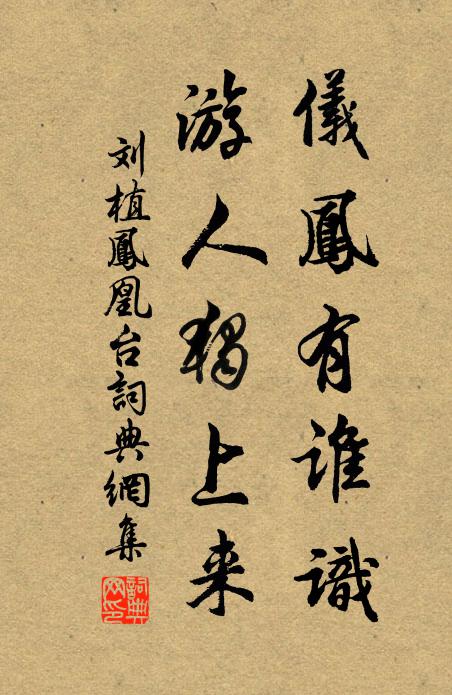 儀鳳有誰識
游人獨上来
刘植鳳凰台詞典網集
詞典网印